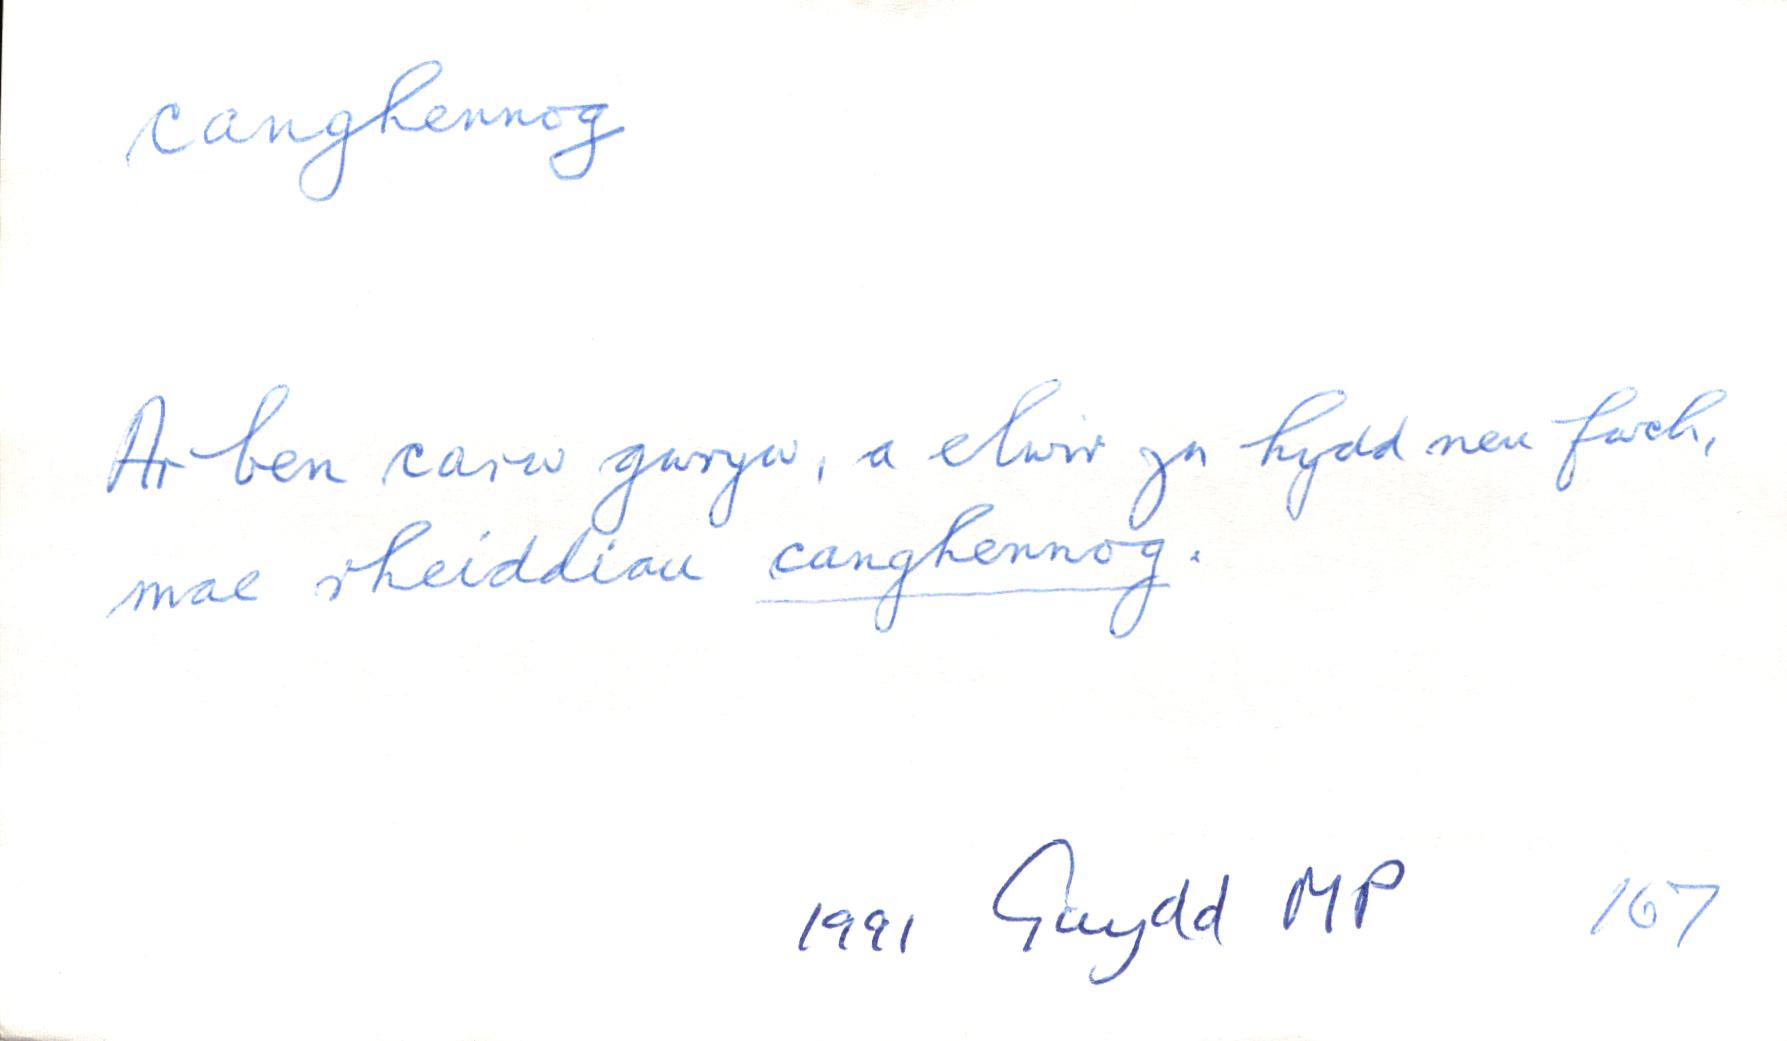 canghennog
Ar ben carw gwryw, a elwir yn hydd neu fwch,
mae rheiddiau canghennog.
1991 Gwydd MP 167